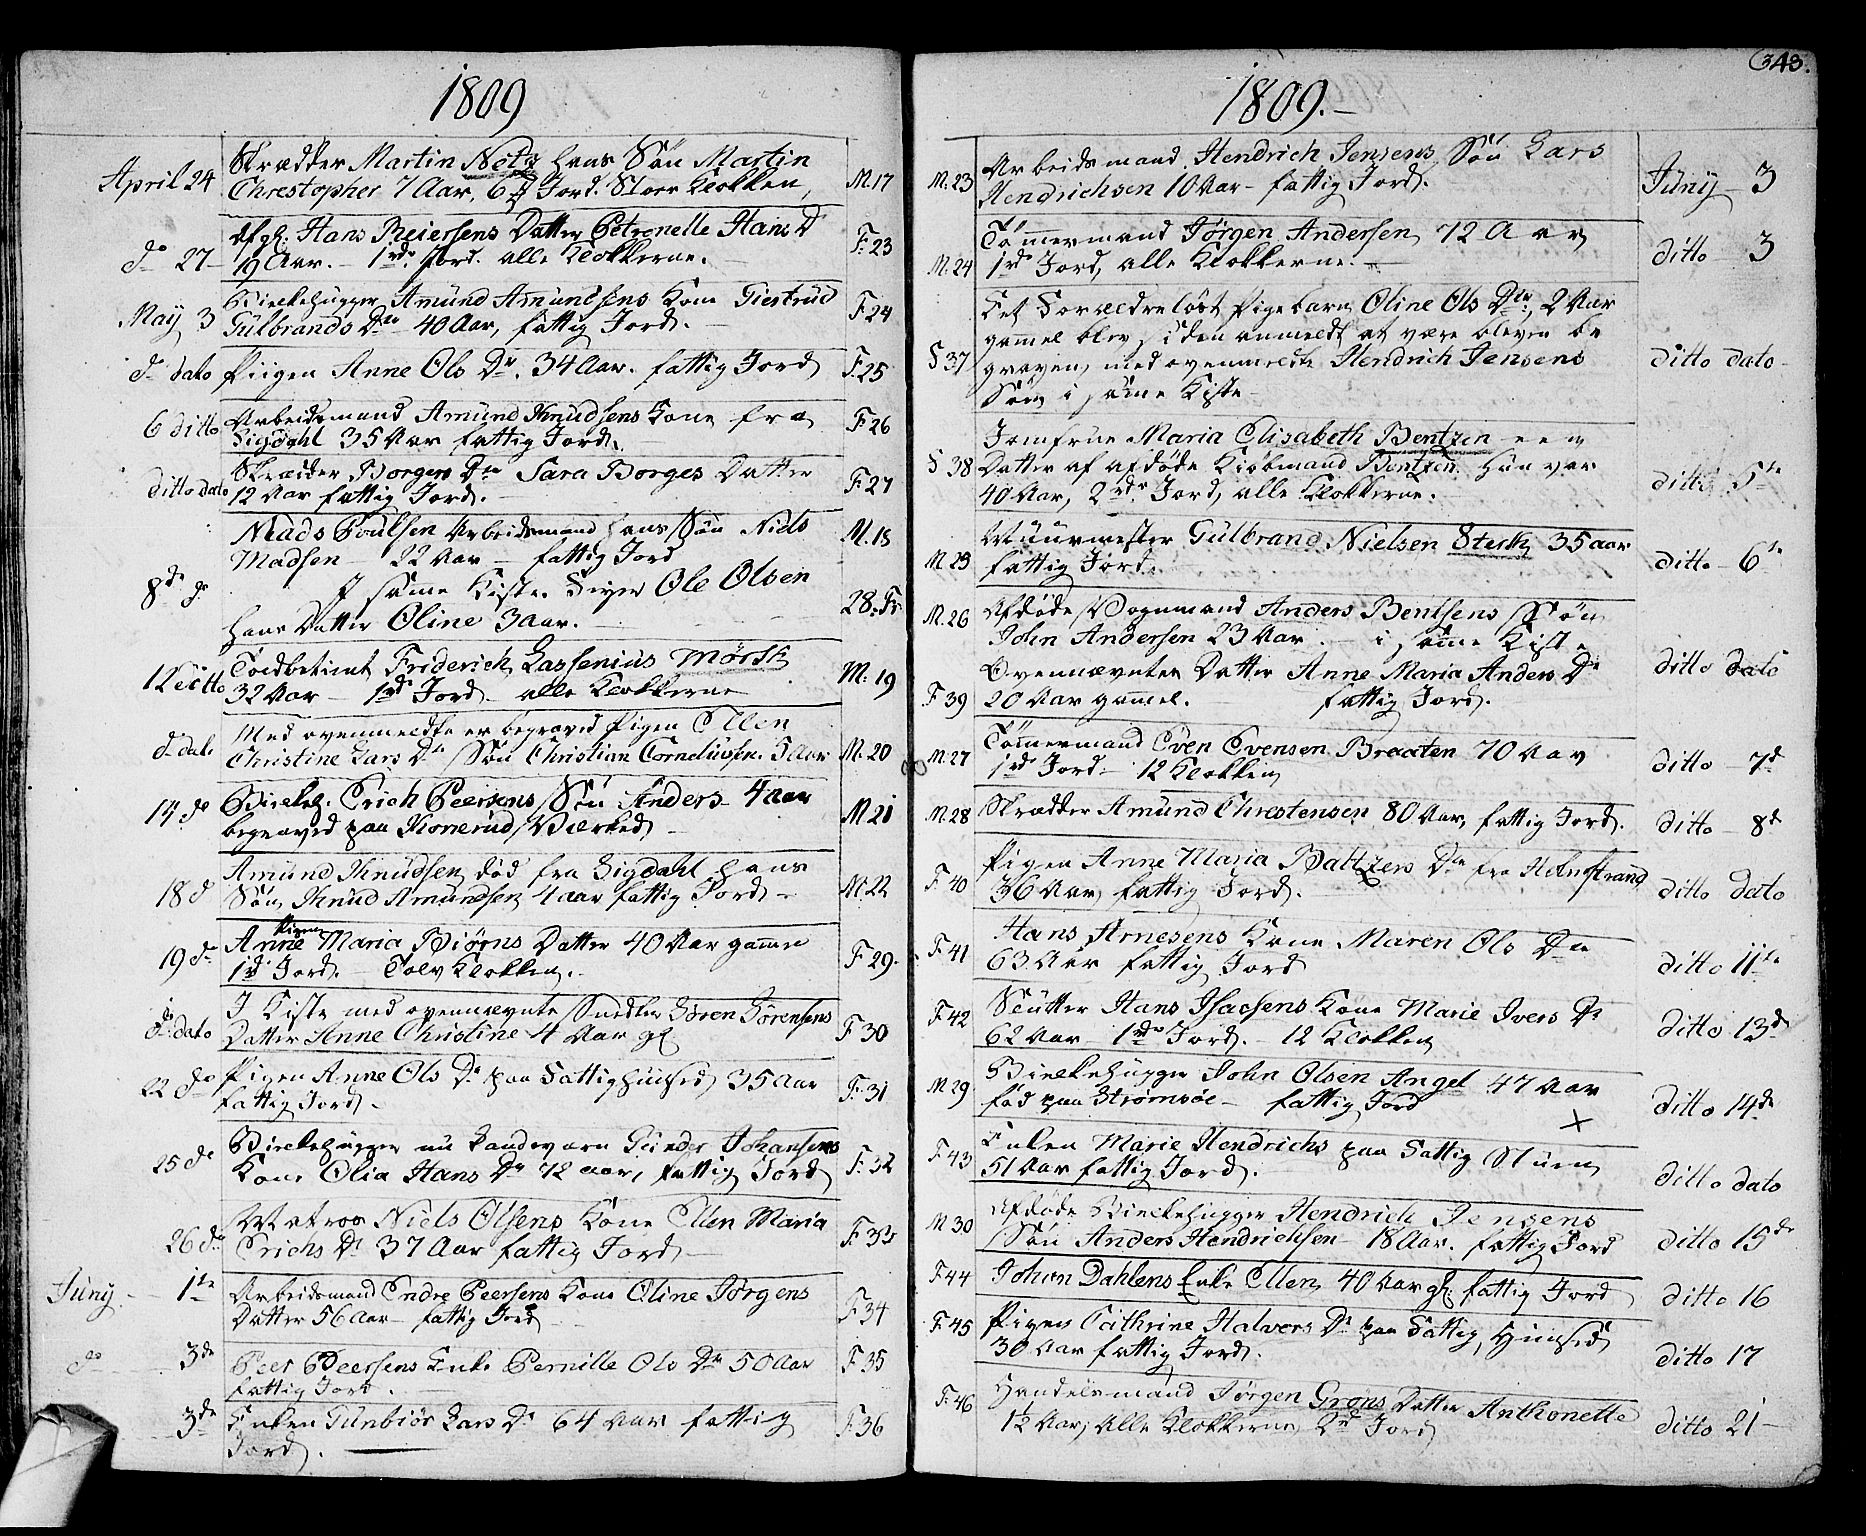 1809
April 24 Skrædder Martin Notz hans Søn Martin
Chrestopher 7 Aar, 6 Jord. Store Klokken, M.17
do 27 afgl: Hans Meiersens Datter Petronelle Hans D
19 Aar. 1rds Jord. alle Klokkerne. F.23
May 3 Birkehugger Amund Amundsens Kone Giertrud
Gulbrands Dtr 40 Aar, fattig Jord. F 24
do dato Piigen Anne Ols Dr. 34 Aar. fattig Jord F.25
6 ditto Arbeidsmand Amund Knudsens Kone fra
Sigdahl 35 Aar fattig Jord. F 26
ditto dato Skrædder Borgers Dtr Sara Borges Datter
12 Aar fattig Jord. F 27
Mads Poulsen Arbeidsmand hans Søn Niels M.18
Madsen 22 Aar fattig Jord
8de do I samme Kiste. Ole Olsen 28. Fr
hans Datter Oline 3 Aar.
12 ditto Toldbetient Friderich Lassenius Mørk
32 Aar 1rds Jord alle Klokkerne M. 19
do dato Med ovenmeldte er begraved Pigen Ellen
Christine Lars Dtr Søn Christian Corneliusen. 5 Aar M. 20
14 do Birkeh. Erich Peersens Søn Anders 4 aar
begraved paa Konerud Værket M 21
18 d Amund Knudsen død fra Sigdahl hans
Søn Knud Amundsen 4 aar fattig Jord M 22
Pigen
19 do Anne Maria Biørns Datter 40 Aar gammel
1rds Jord. Tolv Klokken. F 29.
do dato I Kiste med ovennævnte Snedker Sören Sörensens
Datter Anne Christine 4 Aar gl F 30
22 do Pigen Anne Ols Dr paa Fattighuused 35 Aar
fattig Jord F. 31
25 do Birkehugger nu Gunder Johansens
Kone Olia Hans Dr 72 aar, fattig Jord F. 32
26 do Matros Niels Olsens Kone Ellen Maria
Erichs Dr 37 Aar fattig Jord F. 33
Juny 1te Arbeidsmand Endre Peersens Kone Oline Jørgens
Datter 56 Aar fattig Jord F 34
do 3de Peer Peersens Enke Pernille Ols Dtr 50 Aar
fattig Jord. F. 35
3de Enken Gunbiør Lars Dr 64 Aar fattig
Jord. F 36
348.
1809.
M. 23 Arbeidsmand Hendrich Jensens Søn Lars
Hendrichsen 10 Aar fattig Jord. Juny 3
M. 24 Tömmermand Jørgen Andersen 72 Aar
1rds Jord, alle Klokkerne. ditto 3
Et Forældreløst Pigebarn Oline Ols Dtr, 2 Aar
gammel blev siden anmeldt at være bleven be
F 37 graven, med ovenmeldte Hendrich Jensens ditto dato
Søn i samme Kiste
Jomfrue Maria Elisabeth Bentzen een
F 38 Datter af afdøde Kiøbmand Bentzen. Hun var
40 Aar, 2rds Jord, alle Klokkerne. ditto 5te
Muurmester Gulbrand Nielsen Sterk 35 aar
M 25 fattig Jord. ditto 6te
M. 26 Afdøde Vognmand Anders Bentsens Søn
John Andersen 23 Aar. i samme Kiste
Ovennævntes Datter Anne Maria Anders Dr ditto dato
F 39 20 Aar gammel. fattig Jord.
M. 27 Tömmermand Even Evensen Braaten 70 Aar
1rds Jord. 12 Klokken ditto 7d
M. 28 Skrædder Amund Chrestensen 80 Aar, fattig Jord. ditto 8d
F. 40 Pigen Anne Maria Baltzers Dtr fra Holmstrand
36 Aar, fattig Jord. ditto dato
F 41 Hans Arnesens Kone Maren Ols Dtr
63 Aar fattig Jord ditto 11te
F 42 Hans Isachsens Kone Marie Ivers Dr
62 Aar 1rds Jord. 12 Klokken ditto 13de
M 29 Birkehugger John Olsen Angel 47 Aar
fød paa Strømsøe fattig Jord ditto 14de
F 43 Enken Marie Hendrichs paa Fattig Stuen
51 Aar fattig Jord. ditto dato
M 30 Afdøde Birkehugger Hendrich Jensens
Søn Anders Hendrichsen 18 Aar. fattig Jord ditto 15de
F. 44 Johan Dahlens Enke Ellen 40 Aar gl. fattig Jord ditto 16
F. 45 Pigen Cathrine Halvers Dr paa Fattig Huused
30 Aar fattig Jord. ditto 17
F. 46 Handelsmand Jørgen Grøns Datter Anthonette
1½ Aar, Alle Klokkerne 2rds Jord ditto 21